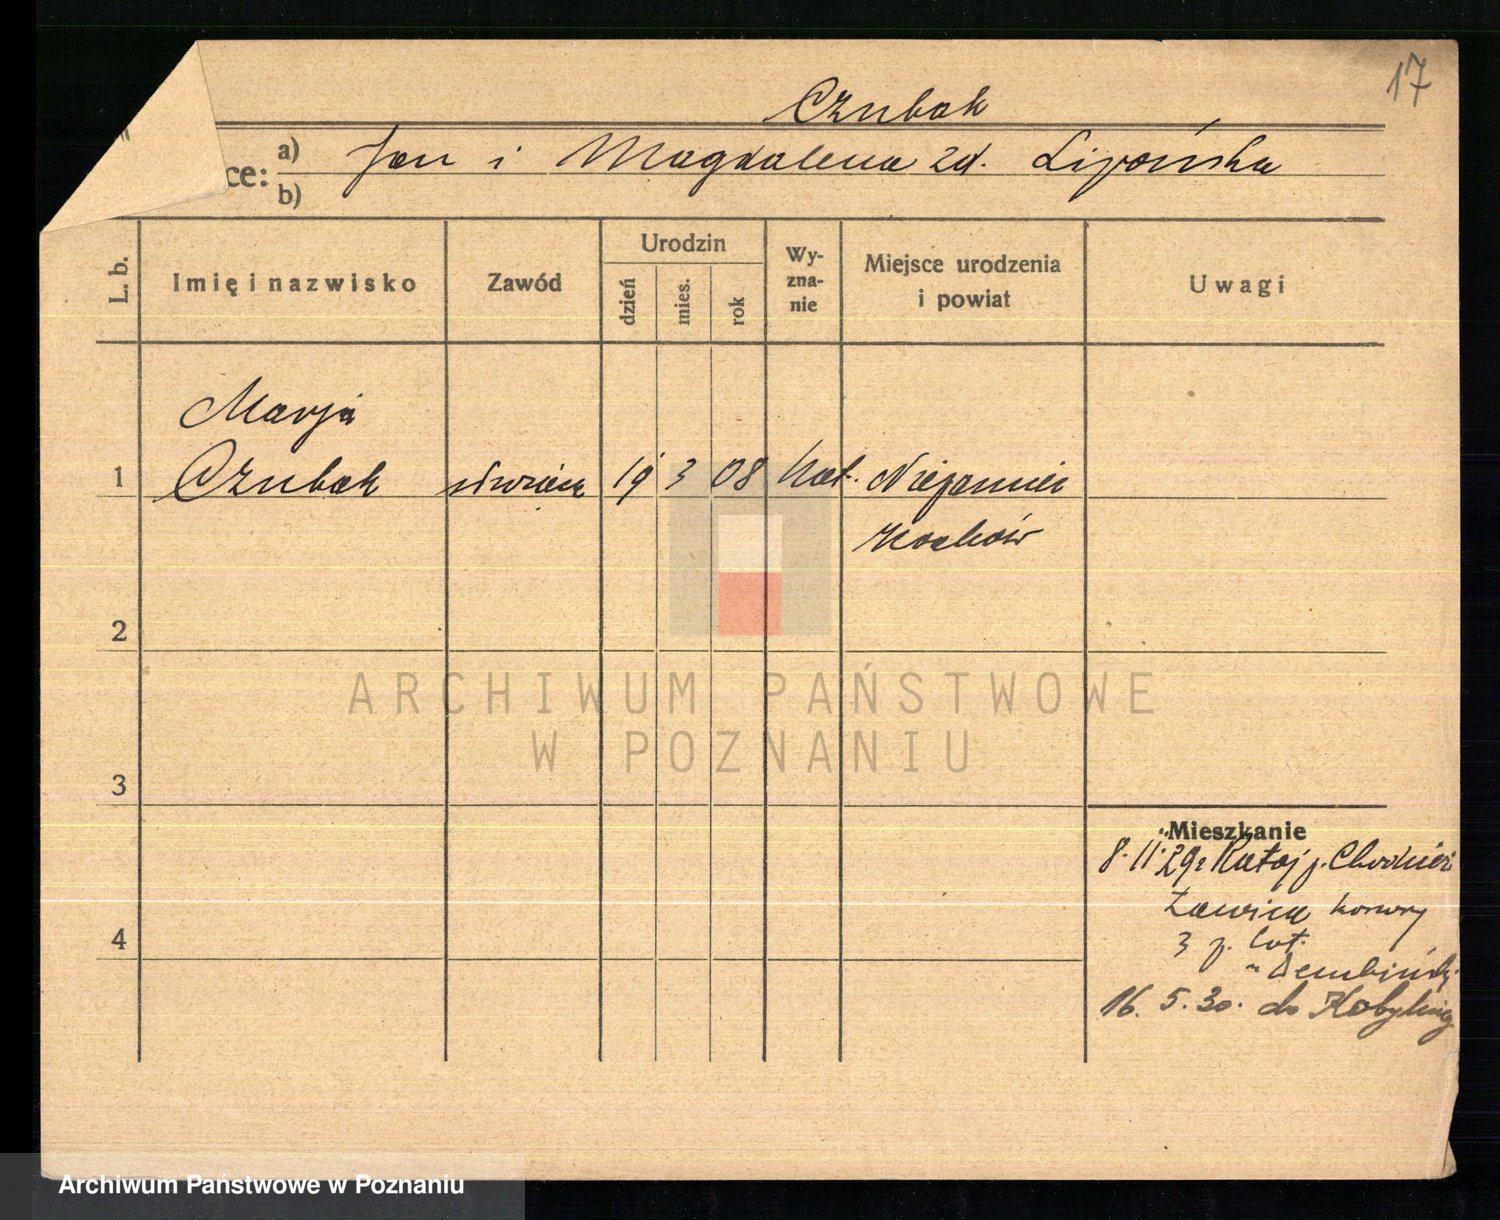 17
Czubak
ce: a) Jan i Magdalena zd. Lipońska
b)
L. b.
Imię i nazwisko
Zawód
Urodzin
dzień
mies.
rok
Wy-
zna-
nie
Miejsce urodzenia
i powiat
Uwagi
Marja
1 Czubak 19 3 08 kat.
2
3
4
Mieszkanie
8.11.29r Rataj p. Chodzież
Ławica koszary
3 p. lot.
Dembiński
16. 5. 30. do Kobylnicy
ARCHIWUM PAŃSTWOWE
W POZNANIU
Archiwum Państwowe w Poznaniu